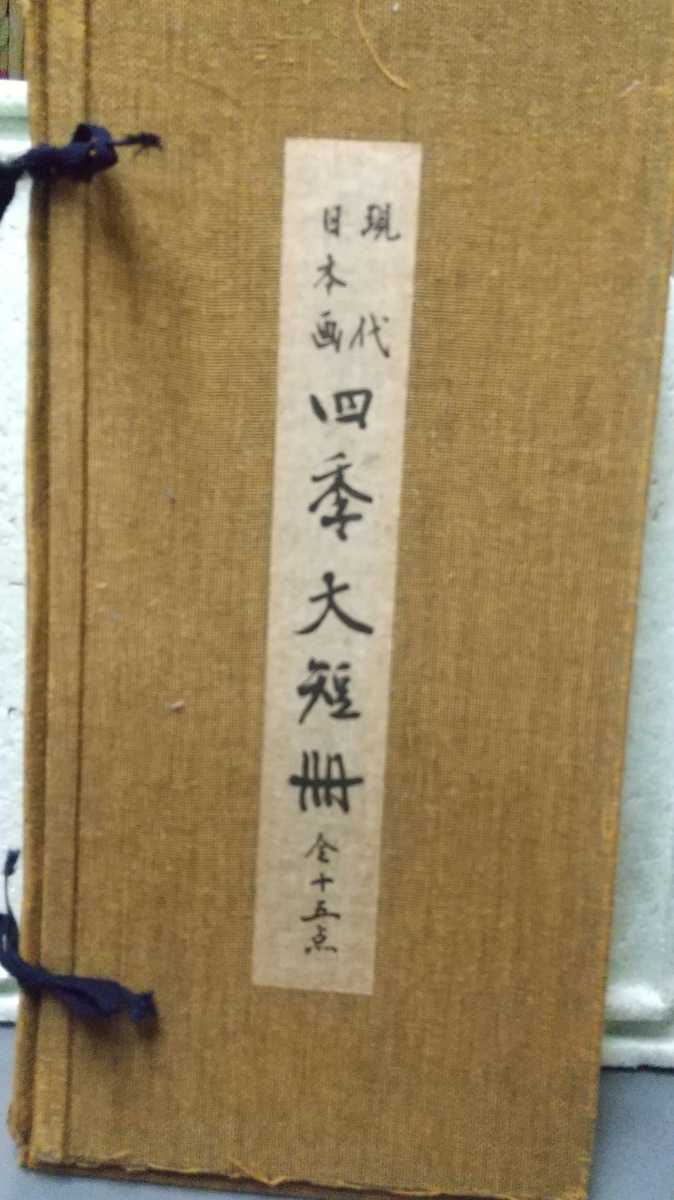 現代
日本画
四季大短冊
全十五点